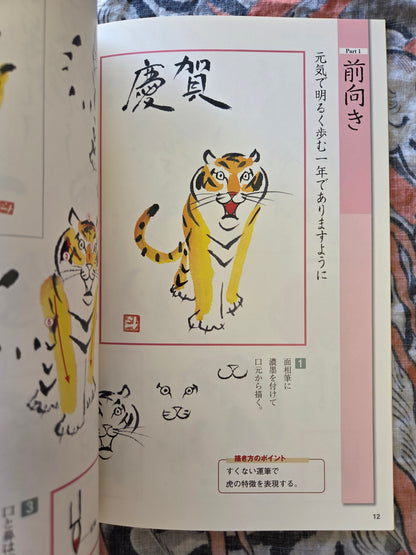 Part 1
前向き
元気で明るく歩む一年でありますように
慶賀
1
面相筆に
濃墨を付けて
口元から描く。
描き方のポイント
すくない運筆で
虎の特徴を表現する。
12
3
口と鼻は